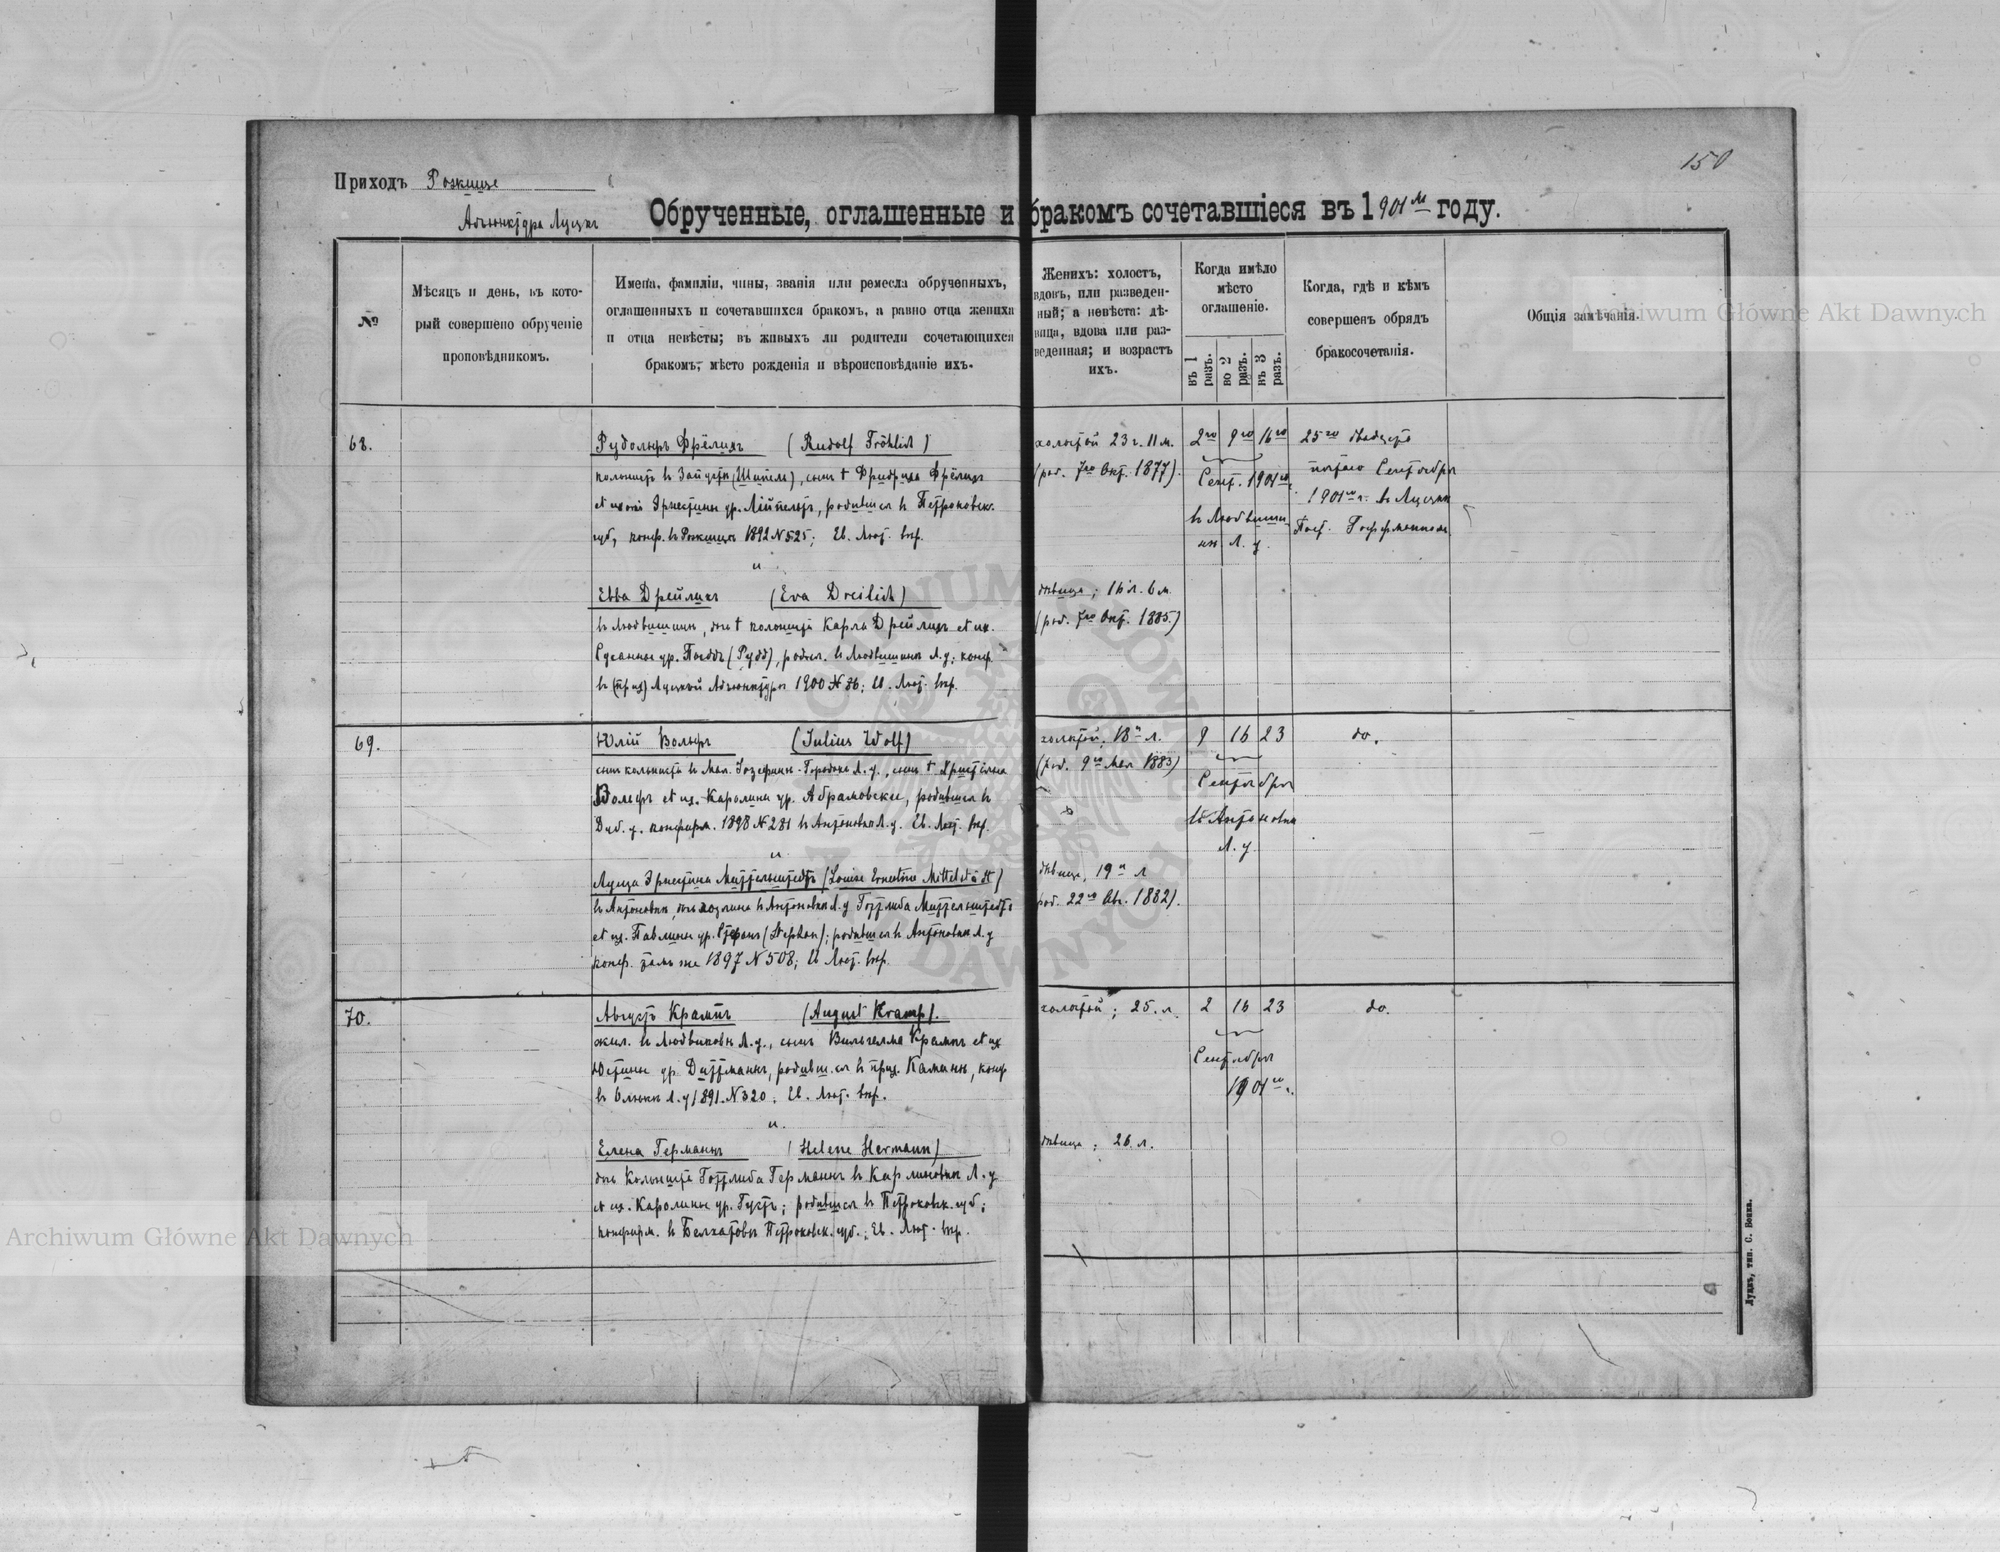 150
Приходъ Рожище
Адъюнктура Луцкъ
Обрученные, оглашенные и бракомъ сочетавшіеся въ 1901 м году.
№
Мѣсяцъ и день, въ кото-
рый совершено обрученіе
проповѣдникомъ.
Имена, фамиліи, чины, званія или ремесла обрученныхъ,
оглашенныхъ и сочетавшихся бракомъ, а равно отца жениха
и отца невѣсты; въ живыхъ ли родители сочетающихся
бракомъ; мѣсто рожденія и вѣроисповѣданіе ихъ.
Женихъ: холостъ,
вдовъ, или разведен-
ный; а невѣста: дѣ-
вица, вдова или раз-
веденная; и возрастъ
ихъ.
Когда имѣло
мѣсто
оглашеніе.
въ 1 разъ.
во 2 разъ.
въ 3 разъ.
Когда, гдѣ и кѣмъ
совершенъ обрядъ
бракосочетанія.
Общія замѣчанія.
68.
Рудольфъ Фрёлихъ (Rudolf Fröhlich)
колонистъ въ (Шипель), сынъ † Фридриха Фрёлихъ
Эрнестины ур. родился въ Петроковск.
губ, конф. въ Рожищахъ 1892 № 525; Ев. Лют. вѣр.
и
Евва Дрейлихъ (Eva Dreilich)
въ дочь † колониста Карла Дрейлихъ и
Сусанны ур. (Рудд), родил. въ Л. у; конф.
въ Луцкой Адъюнктуры 1900 № 36; Ев. Лют. вѣр.
холостой 23 г. 11 м.
(род. 7го Окт. 1877).
дѣвица; 16 л. 6 м.
(род. 7го Окт. 1885.)
2го 9го 16го
Сент. 1901го
Л. у.
25го двадцать
пятаго Сентября
1901го г. въ Луцкѣ
Паст. Гоффманномъ
69.
Юлій Вольфъ (Julius Wolf)
сынъ колониста въ Мал. Іозефинъ-Городокъ Л. у., сынъ † Христіана
Вольфъ и Каролины ур. Абрамовске, родившся въ
Дуб. у. конфирм. 1898 № 281 въ Антоновкѣ Л. у. Ев. Лют. вѣр.
и
Луиза Эрнестина Миттельштедтъ (Louise Ernestine Mittelstädt)
въ Антоновкѣ, дочь въ Антоновкѣ Л. у Готтлиба Миттельштедтъ
Павлины ур. Стефанъ (Stephan); родившся въ Антоновкѣ Л. у
конф. тамъ же 1897 № 508; Ев Лют. вѣр.
холостой, 18 л.
(род. 9го Мая 1883)
дѣвица, 19 л
род. 22го Ав. 1882).
9 16 23
Сентября
въ Антоновкѣ
Л. у.
do.
70.
Августъ Крампъ (August Kramp).
жил. въ Людвиковкѣ Л. у., сынъ Вильгелма Крампъ и
Юстины ур. Диттманъ, родивш. ся въ прих. Каминь, конф
въ Олыкѣ Л. у 1891. № 320; Ев. Лют. вѣр.
и
Елена Германнъ (Helene Hermann)
дочь Колониста Готтлиба Германнъ въ Карлиновкѣ Л. у
Каролины ур. Густъ; родившся въ Петроковск. губ;
конфирм. въ Белхатовѣ Петроковск. губ.; Ев. Лют. вѣр.
холостой; 25. л.
дѣвица; 26 л.
2 16 23
Сентября
1901го г.
do.
Луцкъ, тип. С. Бонка.
Archiwum Główne Akt Dawnych
Archiwum Główne Akt Dawnych